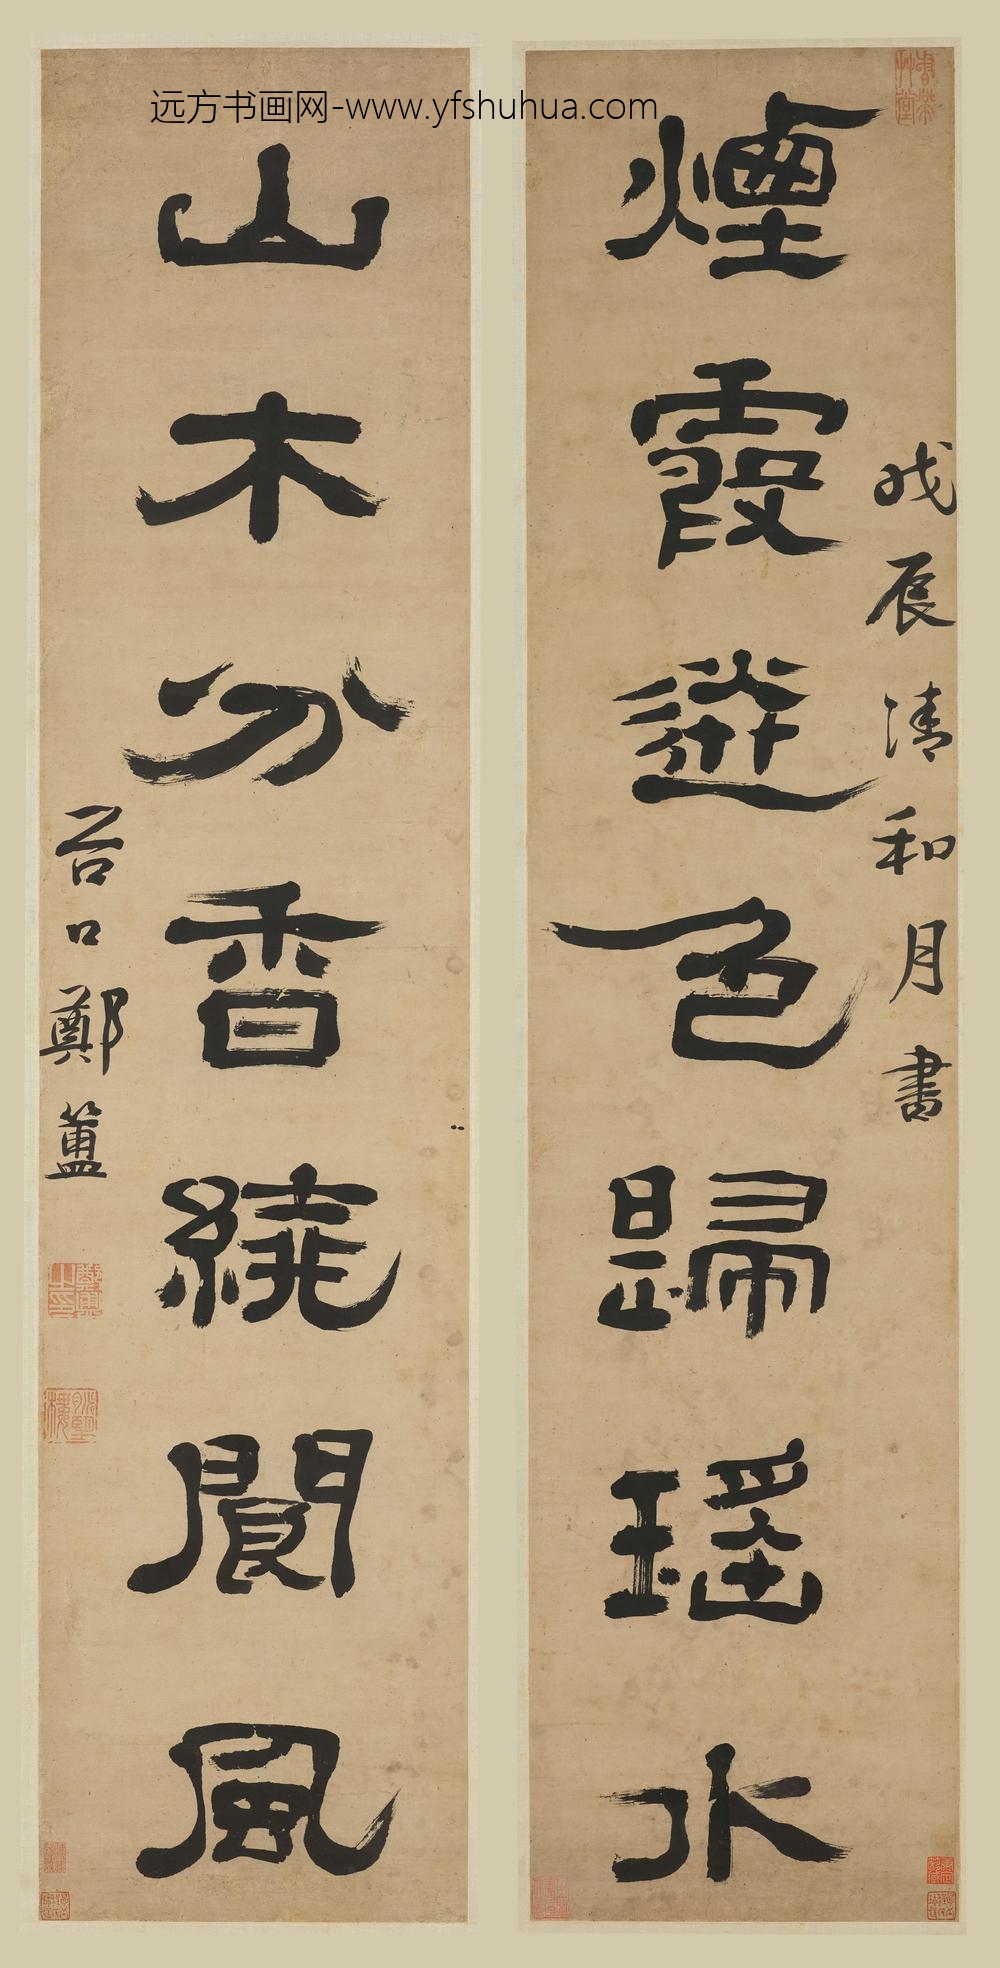 远方书画网-www.yfshuhua.com
煙霞逆色歸瑤水
戊辰清和月書
山木分香繞閬風
谷口鄭簠